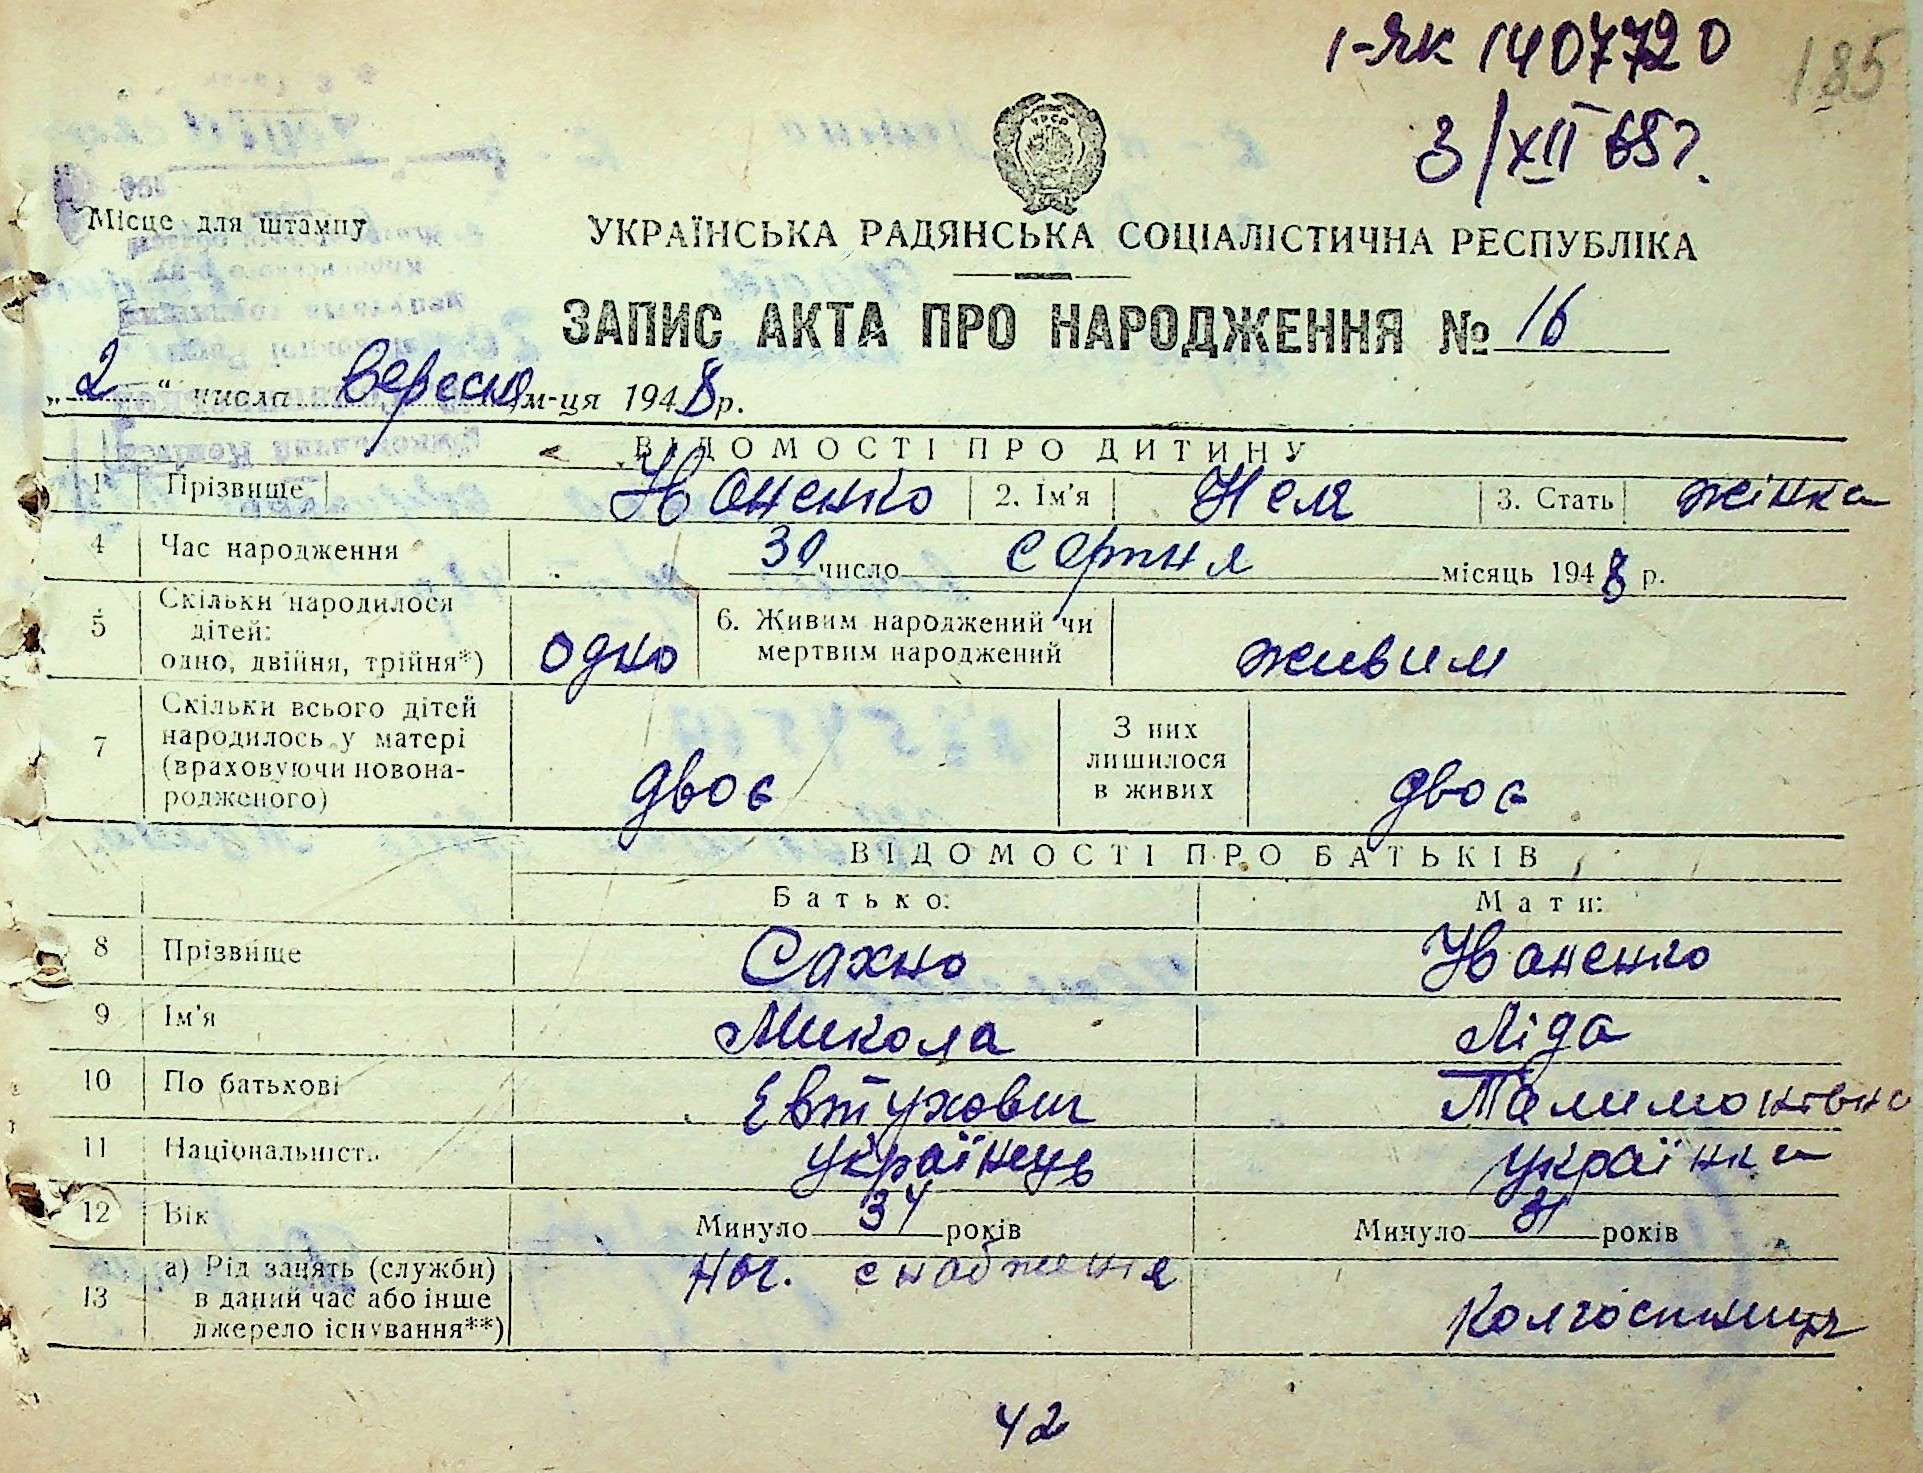 1-ЯК 1407720
185
3/XII 65 г.
УРСР
Місце для штампу
УКРАЇНСЬКА РАДЯНСЬКА СОЦІАЛІСТИЧНА РЕСПУБЛІКА
ЗАПИС АКТА ПРО НАРОДЖЕННЯ № 16
„2“ числа вересня м-ця 1948 р.
ВІДОМОСТІ ПРО ДИТИНУ
1 Прізвище Иваненко 2. Ім'я Неля 3. Стать жінка
4 Час народження 30 число серпня місяць 1948 р.
5 Скільки народилося дітей: одно, двійня, трійня*) одно 6. Живим народжений чи мертвим народжений живим
7 Скільки всього дітей народилось у матері (враховуючи новонародженого) двоє З них лишилося в живих двоє
ВІДОМОСТІ ПРО БАТЬКІВ
Батько: Мати:
8 Прізвище Сахно Иваненко
9 Ім'я Микола Ліда
10 По батькові Евтухович
11 Національність українець українка
12 Вік Минуло 34 років Минуло 31 років
13 а) Рід занять (служби) в даний час або інше джерело існування**) Нач. снабження Колгоспниця
42